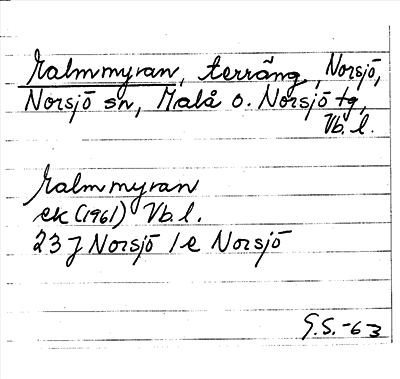 Malmmyran, terräng, Norsjö,
Norsjö sn, Malå o. Norsjö tg,
Vb. l.
Malmmyran
ek (1961) Vb. l.
23 J Norsjö 1 e Norsjö
G.S. -63